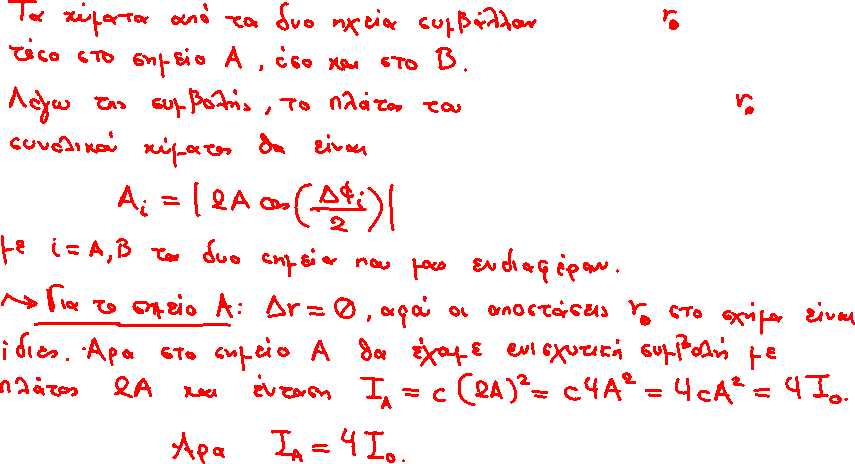 Τα κύματα από τα δυο ηχεία συμβάλλουν r₀
τόσο στο σημείο Α, όσο και στο Β.
Λόγω της συμβολής, το πλάτος του r₀
συνολικού κύματος θα είναι
Aᵢ = |2A cos(Δφᵢ/2)|
με i = A, B τα δυο σημεία που μας ενδιαφέρουν.
↝ Για το σημείο Α: Δr = 0, αφού οι αποστάσεις r₀ στο σχήμα είναι
ίδιες. Άρα στο σημείο Α θα έχουμε ενισχυτική συμβολή με
πλάτος 2A και ένταση I_A = c(2A)² = c4A² = 4cA² = 4I₀.
Άρα I_A = 4I₀.